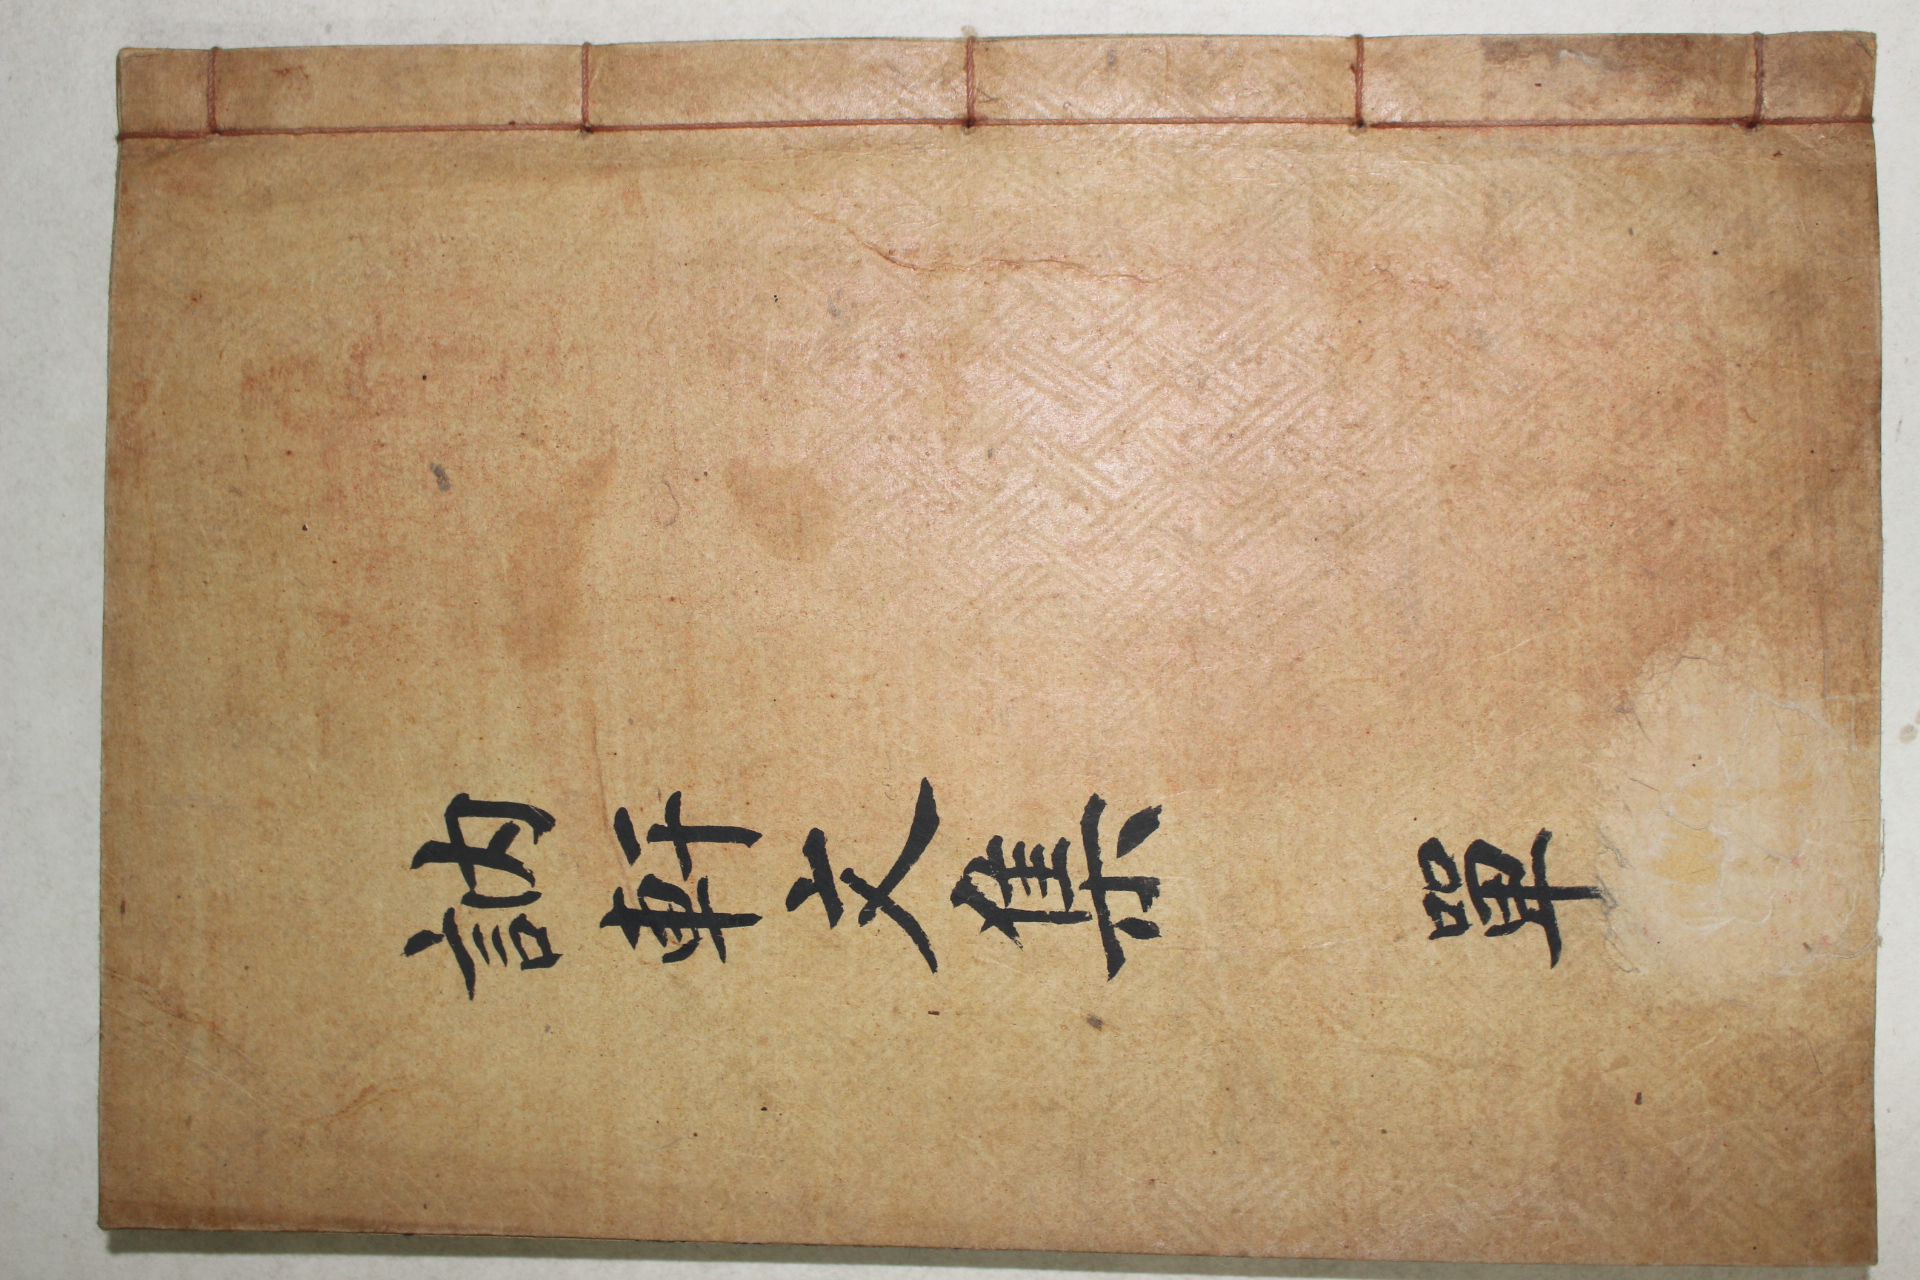 訥軒文集 單